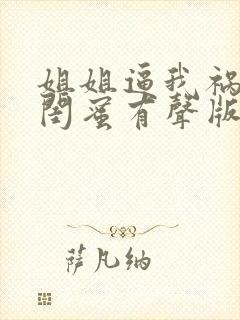 姐姐逼我祸
闺蜜有聲版
萨凡纳